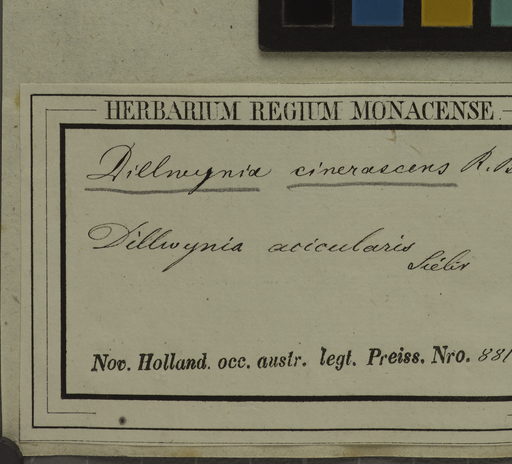 HERBARIUM REGIUM MONACENSE.
Dillwynia cinerascens R. B
Dillwynia acicularis
Sieber
Nov. Holland. occ. austr. legt. Preiss. Nro. 881